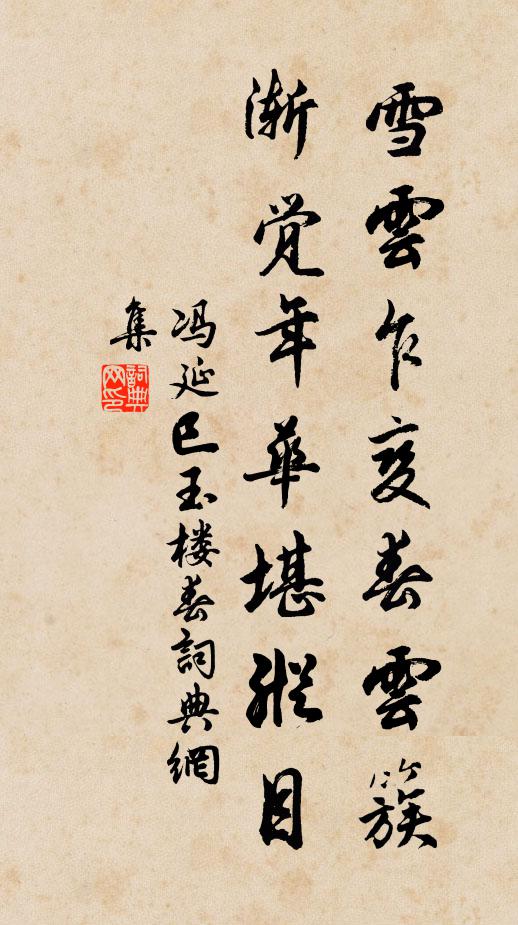 雪雲乍变春雲簇
渐覚年華堪縱目
冯延巳玉楼春詞典網
集
詞典网印